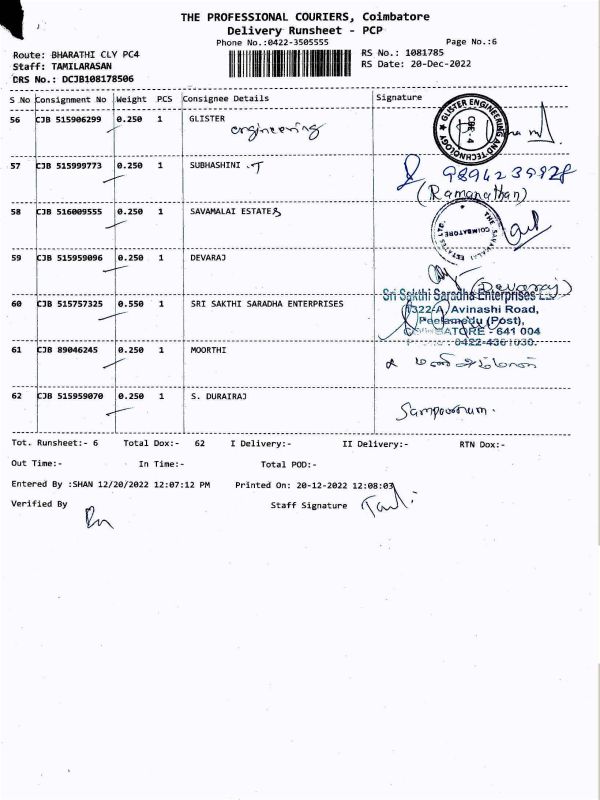 THE PROFESSIONAL COURIERS, Coimbatore
Delivery Runsheet - PCP
Phone No.:0422-3505555 Page No.:6
Route: BHARATHI CLY PC4 RS No.: 1081785
Staff: TAMILARASAN RS Date: 20-Dec-2022
DRS No.: DCJB108178506
S No Consignment No Weight PCS Consignee Details Signature
56 CJB 515906299 0.250 1 GLISTER
engineering
GLISTER ENGINEERING AND TECHNOLOGY
CBE - 4
57 CJB 515999773 0.250 1 SUBHASHINI .T
(Ramanathan)
58 CJB 516009555 0.250 1 SAVAMALAI ESTATES
COIMBATORE
59 CJB 515959096 0.250 1 DEVARAJ
(Devaraj)
60 CJB 515757325 0.550 1 SRI SAKTHI SARADHA ENTERPRISES
Sri Sakthi Saradha Enterprises
1322-A, Avinashi Road,
Peelamedu (Post),
641 004
0422-4361030.
61 CJB 89046245 0.250 1 MOORTHI
62 CJB 515959070 0.250 1 S. DURAIRAJ
Sampoornam.
Tot. Runsheet:- 6 Total Dox:- 62 I Delivery:- II Delivery:- RTN Dox:-
Out Time:- In Time:- Total POD:-
Entered By :SHAN 12/20/2022 12:07:12 PM Printed On: 20-12-2022 12:08:03
Verified By Staff Signature